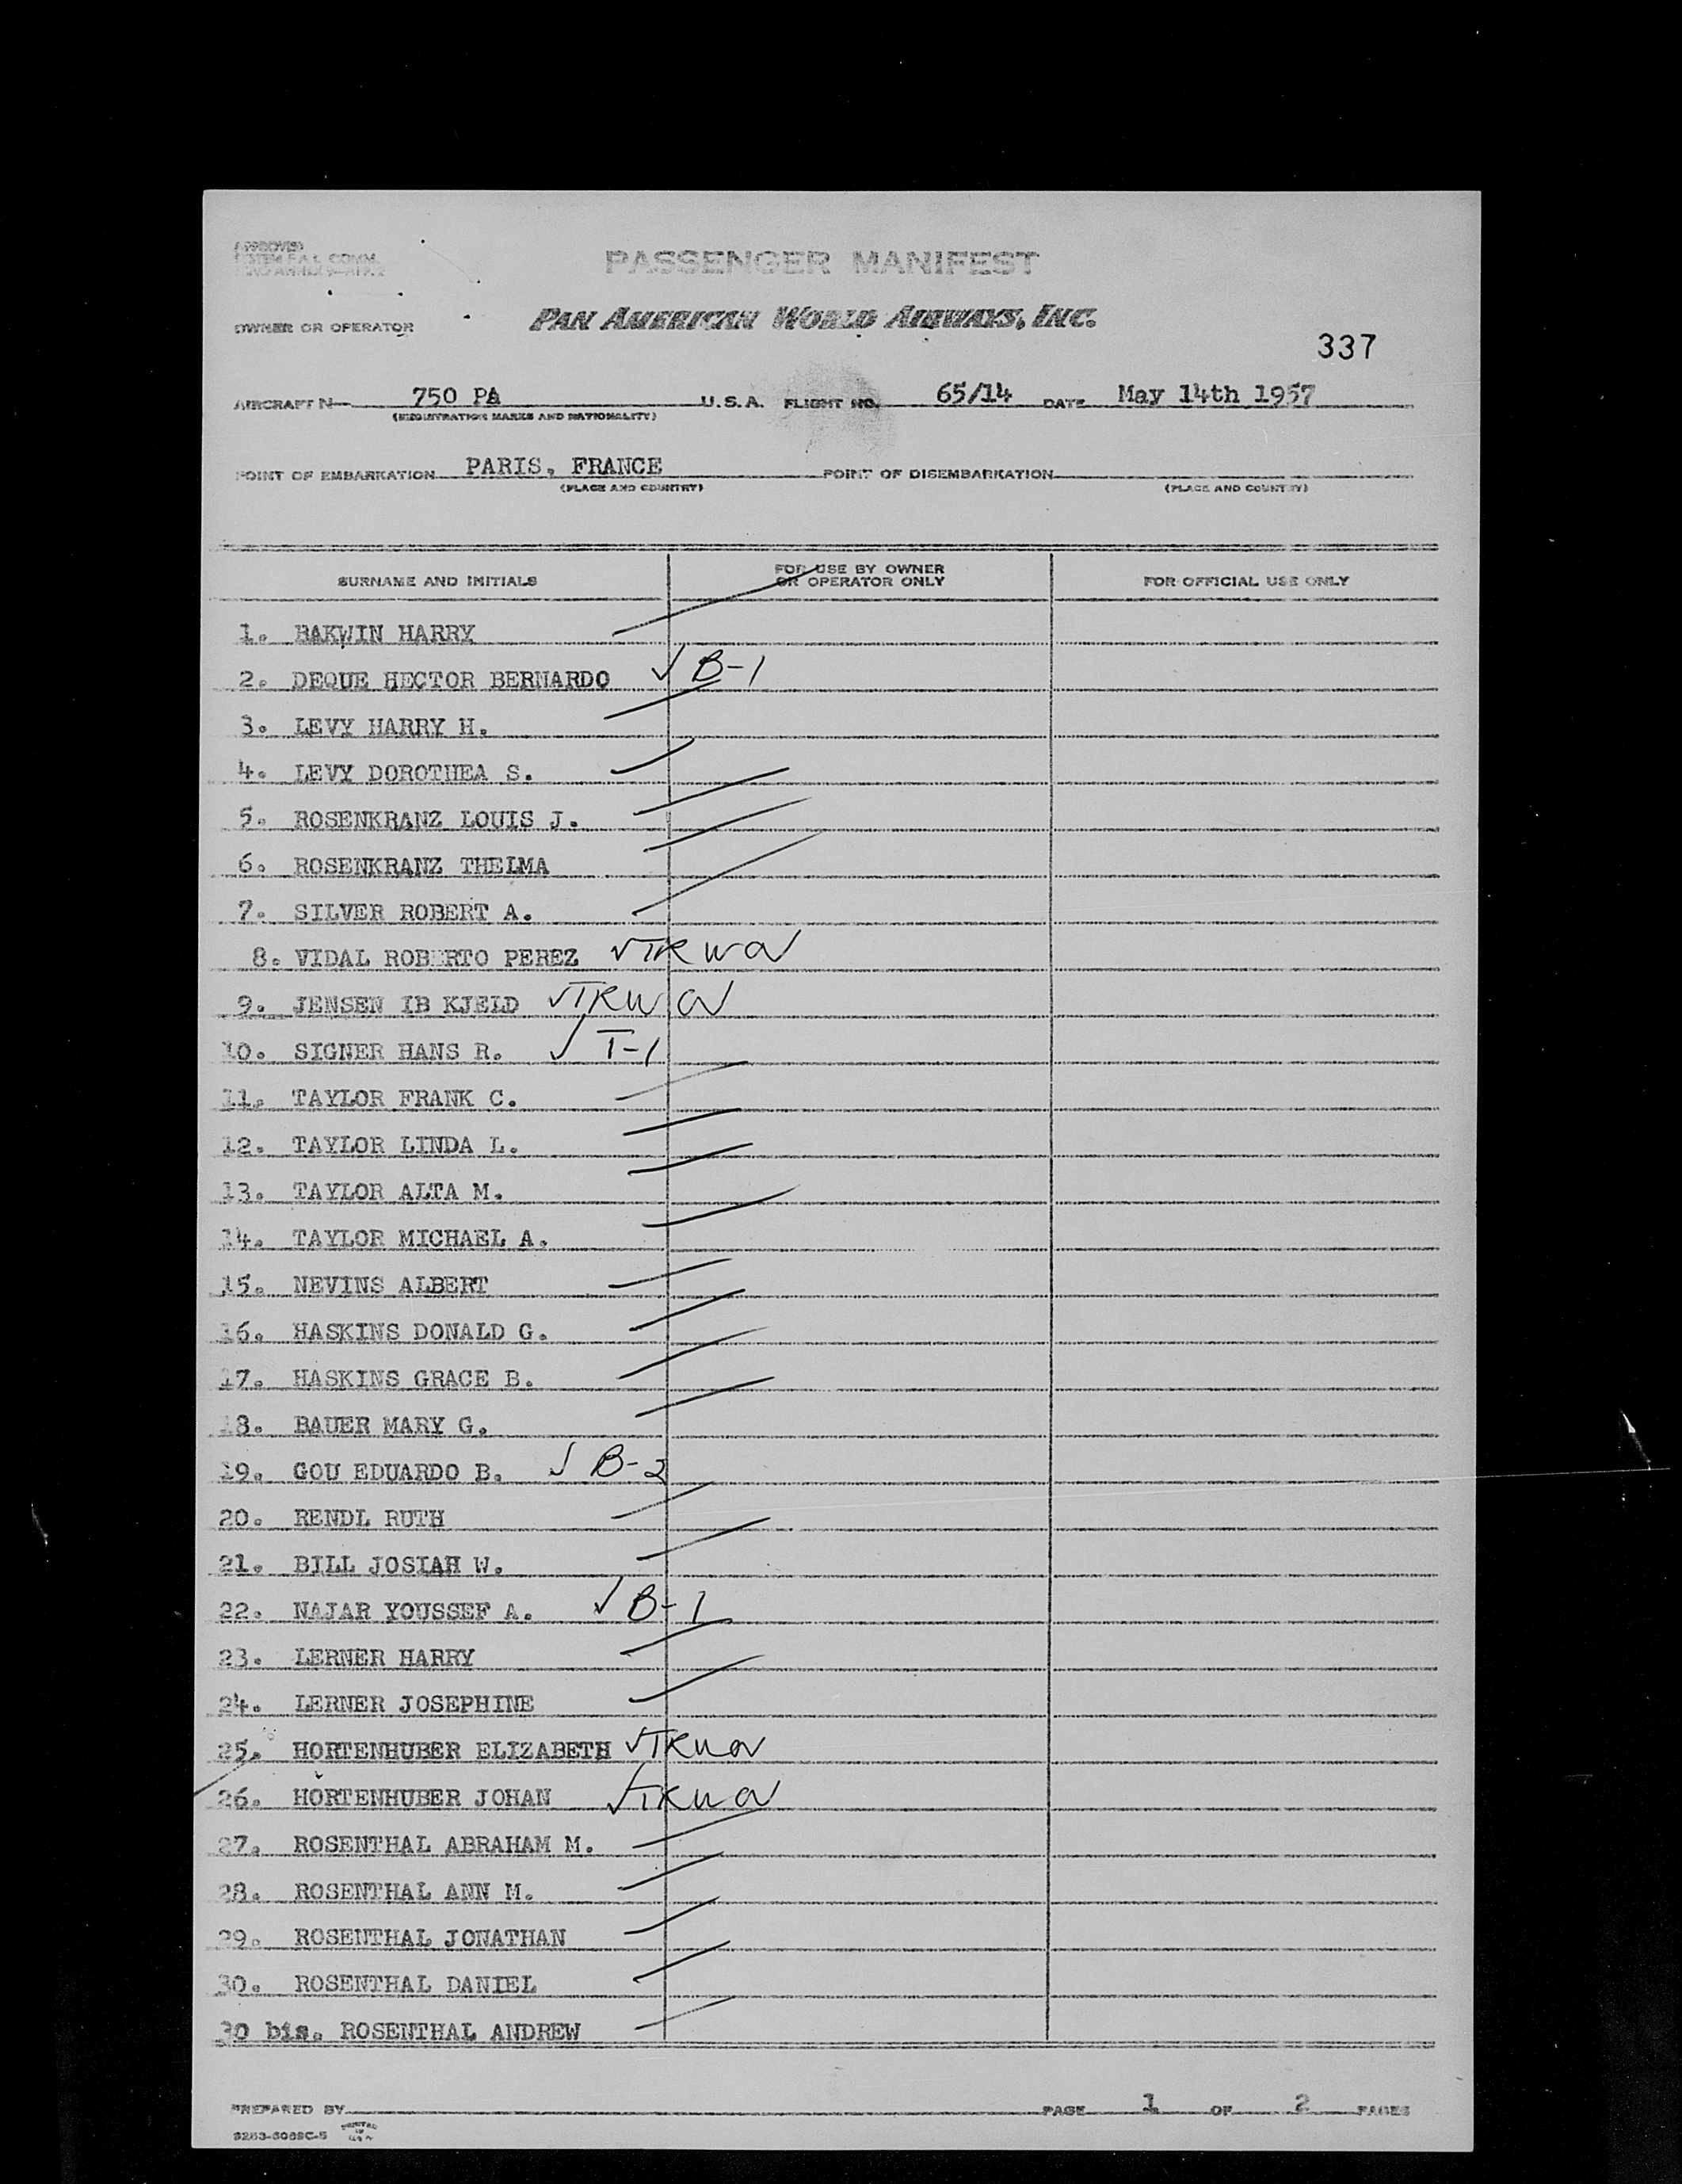 APPROVED
SYSTEM F.A.L. COMM.
PASSENGER MANIFEST
OWNER OR OPERATOR
PAN AMERICAN WORLD AIRWAYS, INC.
337
AIRCRAFT N— 750 PA U.S.A. FLIGHT NO. 65/14 DATE May 14th 1957
(REGISTRATION MARKS AND NATIONALITY)
POINT OF EMBARKATION PARIS, FRANCE POINT OF DISEMBARKATION
(PLACE AND COUNTRY) (PLACE AND COUNTRY)
SURNAME AND INITIALS FOR USE BY OWNER OR OPERATOR ONLY FOR OFFICIAL USE ONLY
1. BAKWIN HARRY
2. DEQUE HECTOR BERNARDO √ B-1
3. LEVY HARRY H.
4. LEVY DOROTHEA S.
5. ROSENKRANZ LOUIS J.
6. ROSENKRANZ THELMA
7. SILVER ROBERT A.
8. VIDAL ROBERTO PEREZ √ TRWOV
9. JENSEN IB KJELD √ TRWOV
10. SIGNER HANS R. √ T-1
11. TAYLOR FRANK C.
12. TAYLOR LINDA L.
13. TAYLOR ALTA M.
14. TAYLOR MICHAEL A.
15. NEVINS ALBERT
16. HASKINS DONALD G.
17. HASKINS GRACE B.
18. BAUER MARY G.
19. GOU EDUARDO B. √ B-2
20. RENDL RUTH
21. BILL JOSIAH W.
22. NAJAR YOUSSEF A. √ B-1
23. LERNER HARRY
24. LERNER JOSEPHINE
25. HORTENHUBER ELIZABETH √ TRWOV
26. HORTENHUBER JOHAN √ TRWOV
27. ROSENTHAL ABRAHAM M.
28. ROSENTHAL ANN M.
29. ROSENTHAL JONATHAN
30. ROSENTHAL DANIEL
30 bis. ROSENTHAL ANDREW
PREPARED BY PAGE 1 OF 2 PAGES